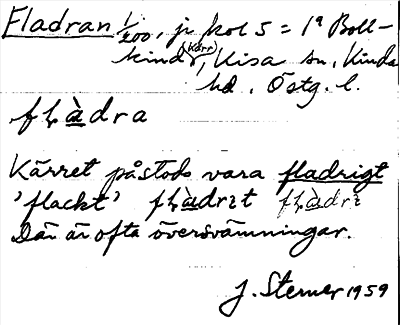 Fladran 1/200, jr kol 5 = 1ª Boll-
kind (Kärr), Kisa sn, Kinda
hd. Östg. l.
fɬàdra
Kärret påstods vara fladrigt
'flackt' fɬàdrɩt fɬàdrɩ
Där är ofta översvämningar.
J. Sterner 1959